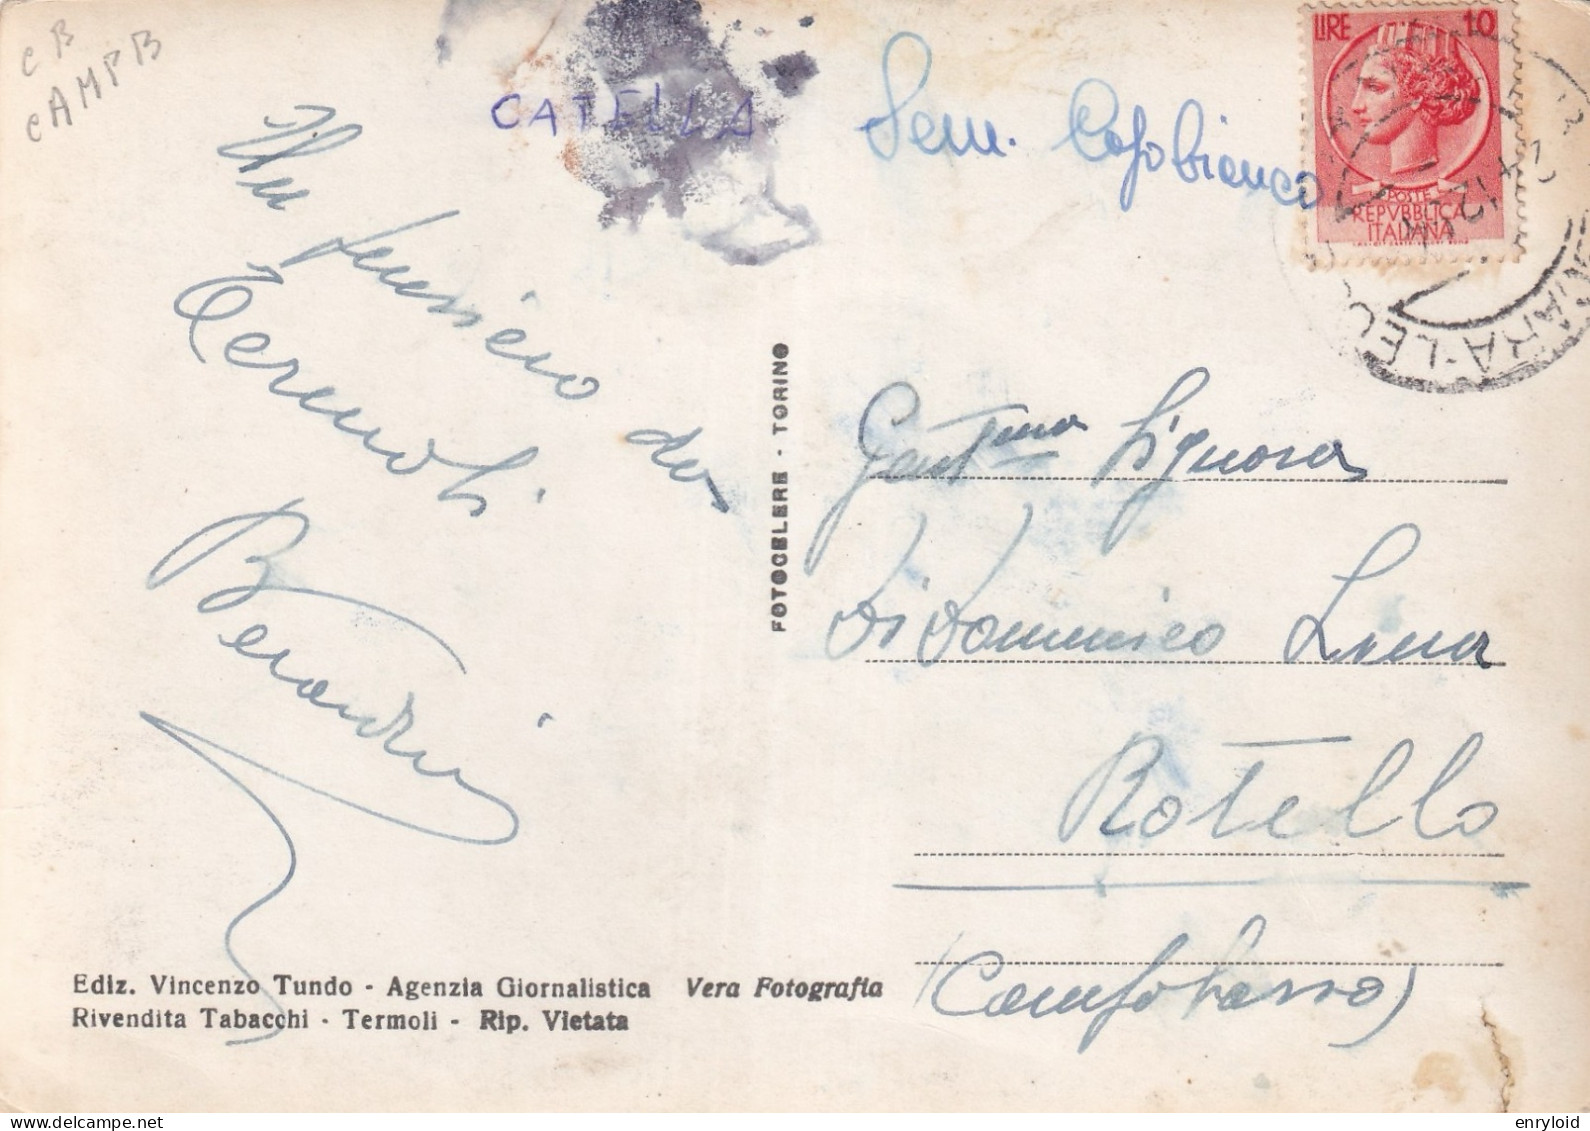 CB
CAMPB
CATELLA
Sem. Capobianco
LIRE 10
POSTE
REPVBBLICA
ITALIANA
Un pensiero da
Termoli
Berardini
FOTOCELERE - TORINO
Gent.ma Signora
Di Domenico Lina
Rotello
(Campobasso)
Ediz. Vincenzo Tundo - Agenzia Giornalistica Vera Fotografia
Rivendita Tabacchi - Termoli - Rip. Vietata
enryloid